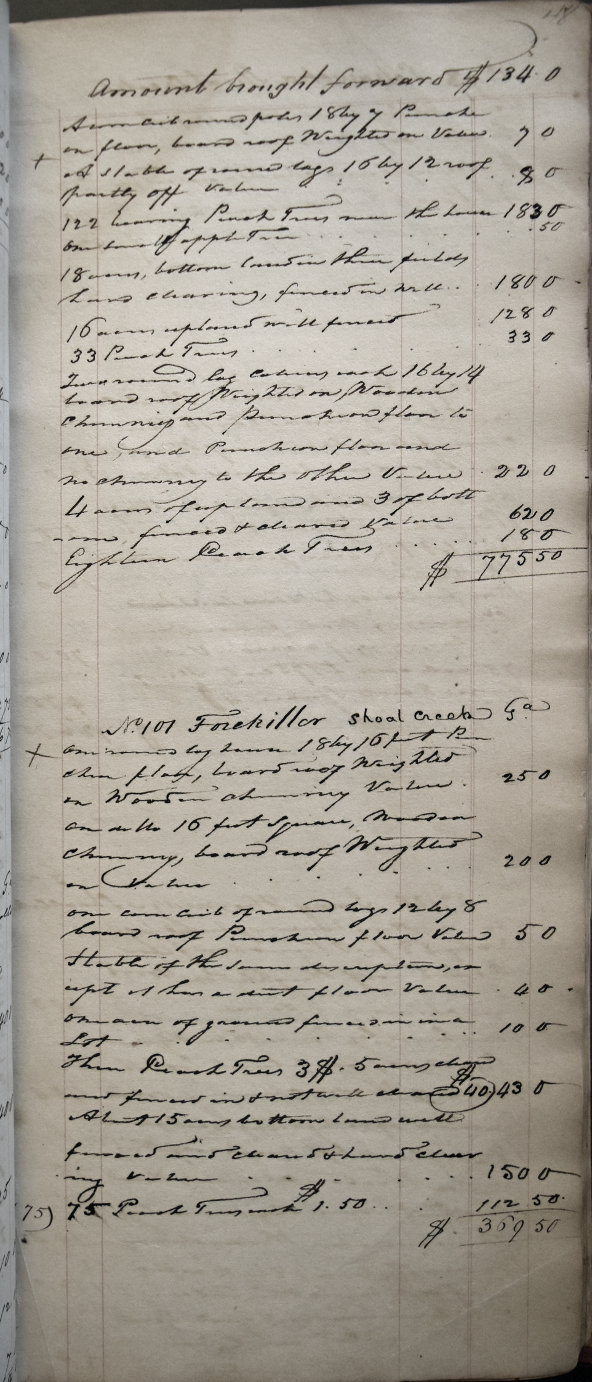 Amount brought forward $ 134 0
A corn crib round poles 18 by 7 Punche
on floor, board roof Weighted on Value. 7 0
A Stable of round logs 16 by 12 roof
partly off Value 8 0
122 bearing Peach Trees near the house 183 0
one small apple Tree .50
18 acres, bottom land in three fields
hard clearing, fenced in well.. 180 0
16 acres upland well fenced 128 0
33 Peach Trees. 33 0
Two round log cabins each 16 by 14
board roof Weighted on, Wooden
chimney and Puncheon floor to
one, and Puncheon floor and
no chimney to the other Value 22 0
4 acres of upland and 3 of bott
-om, fenced & cleared Value 62 0
Eighteen Peach Trees 18 0
$ 775 50
No. 101 Forekillar Shoal Creek Ga
one round log house 18 by 16 feet Pun
cheon floor, board roof Weighted
on Wooden chimney Value. 25 0
one ditto 16 feet Square, Wooden
chimney, board roof Weighted
on Value 20 0
one corn crib of round logs 12 by 8
board roof Puncheon floor Value 5 0
Stable of the same description, ex
cept it has a dirt floor Value 4 0
one acre of ground fenced in in a
Lot 10 0
Three Peach Trees 3 $. 5 acres
and fenced in & not well cleared $40) 43 0
About 15 acres bottom land well
fenced and cleared & hard clear
ing Value 150 0
75) 75 Peach Trees each $ 1.50.. 112 50.
$ 369 50